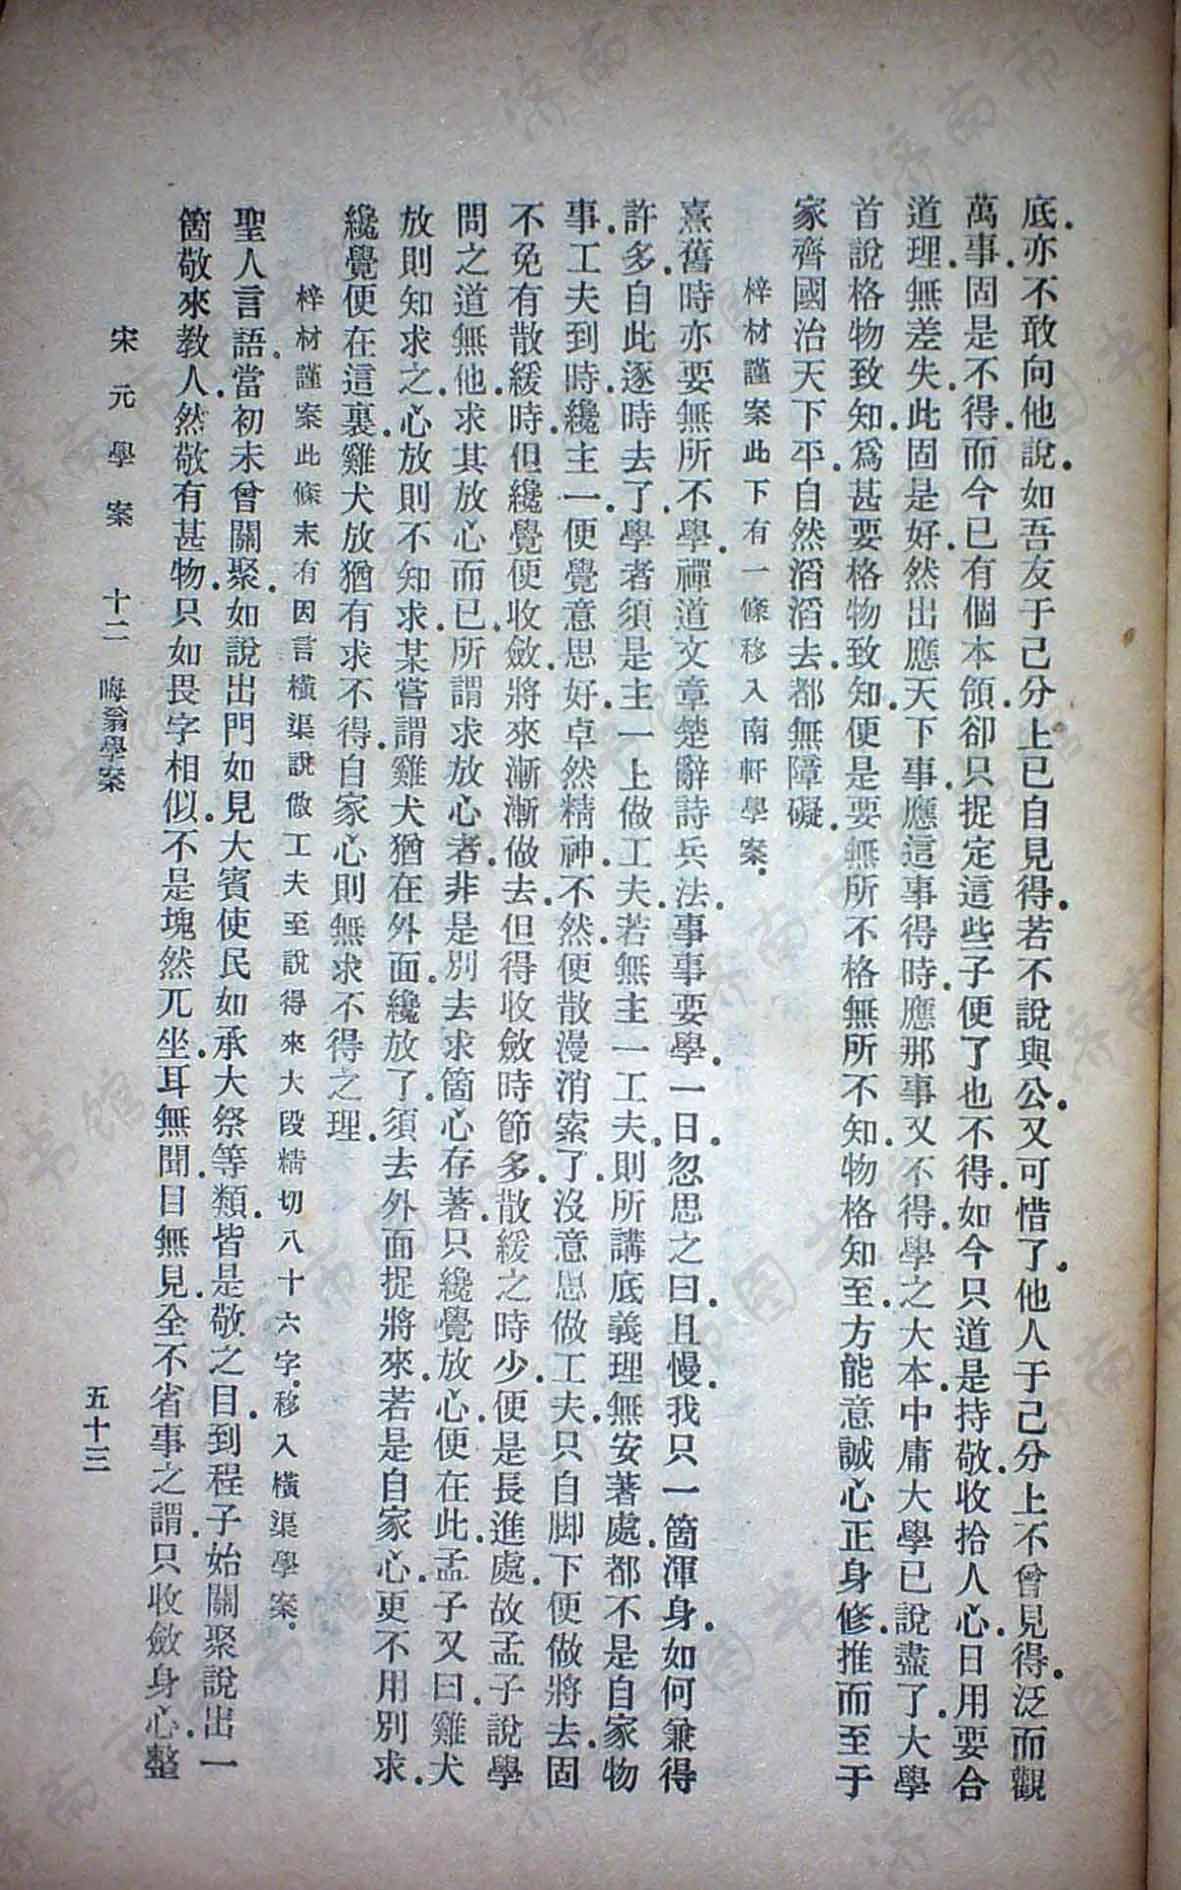 底.亦不敢向他說.如吾友于己分上已自見得.若不說與公.又可惜了.他人于己分上不曾見得.泛而觀
萬事.固是不得.而今已有個本領.卻只捉定這些子便了.也不得.如今只道是持敬.收拾人心.日用要合
道理.無差失.此固是好.然出應天下事.應這事得時.應那事又不得.學之大本.中庸大學已說盡了.大學
首說格物致知.爲甚要格物致知.便是要無所不格.無所不知.物格知至.方能意誠心正身修.推而至于
家齊國治天下平.自然滔滔去.都無障礙.
梓材謹案此下有一條移入南軒學案.
熹舊時亦要無所不學.禪道文章楚辭詩兵法.事事要學.一日忽思之曰.且慢.我只一箇渾身.如何兼得
許多.自此逐時去了.學者須是主一上做工夫.若無主一工夫.則所講底義理無安著處.都不是自家物
事.工夫到時.纔主一.便覺意思好.卓然精神.不然.便散漫消索了.沒意思做工夫.只自脚下便做將去.固
不免有散緩時.但纔覺便收斂.將來漸漸做去.但得收斂時節多.散緩之時少.便是長進處.故孟子說學
問之道無他.求其放心而已.所謂求放心者.非是別去求箇心存著.只纔覺放.心便在此.孟子又曰.雞犬
放則知求之.心放則不知求.某嘗謂雞犬猶在外面.纔放了.須去外面捉將來.若是自家心.更不用別求.
纔覺便在這裏.雞犬放猶有求不得.自家心則無求不得之理.
梓材謹案此條末有因言橫渠說做工夫至說得來大段精切八十六字.移入橫渠學案.
聖人言語.當初未曾關聚.如說出門如見大賓使民如承大祭等類.皆是敬之目.到程子始關聚說出一
箇敬來教人.然敬有甚物.只如畏字相似.不是塊然兀坐.耳無聞.目無見.全不省事之謂.只收斂身心.整
宋元學案 十二 晦翁學案
五十三